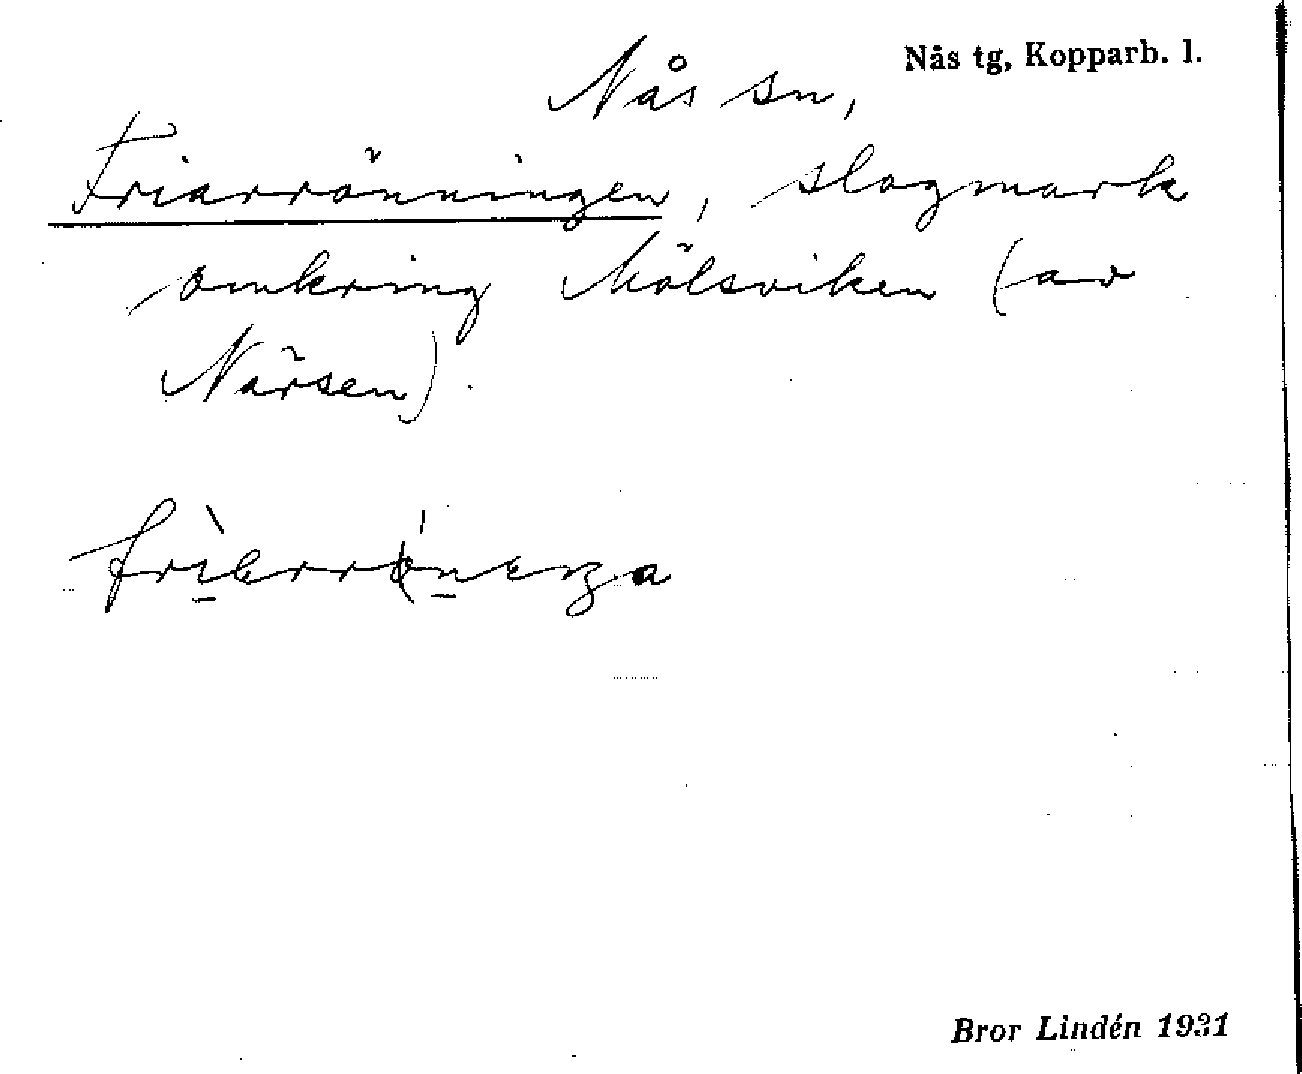 Nås tg, Kopparb. l.
Nås sn,
Friarrönningen, slogmark
omkring Mölsviken (av
Närsen).
Bror Lindén 1931